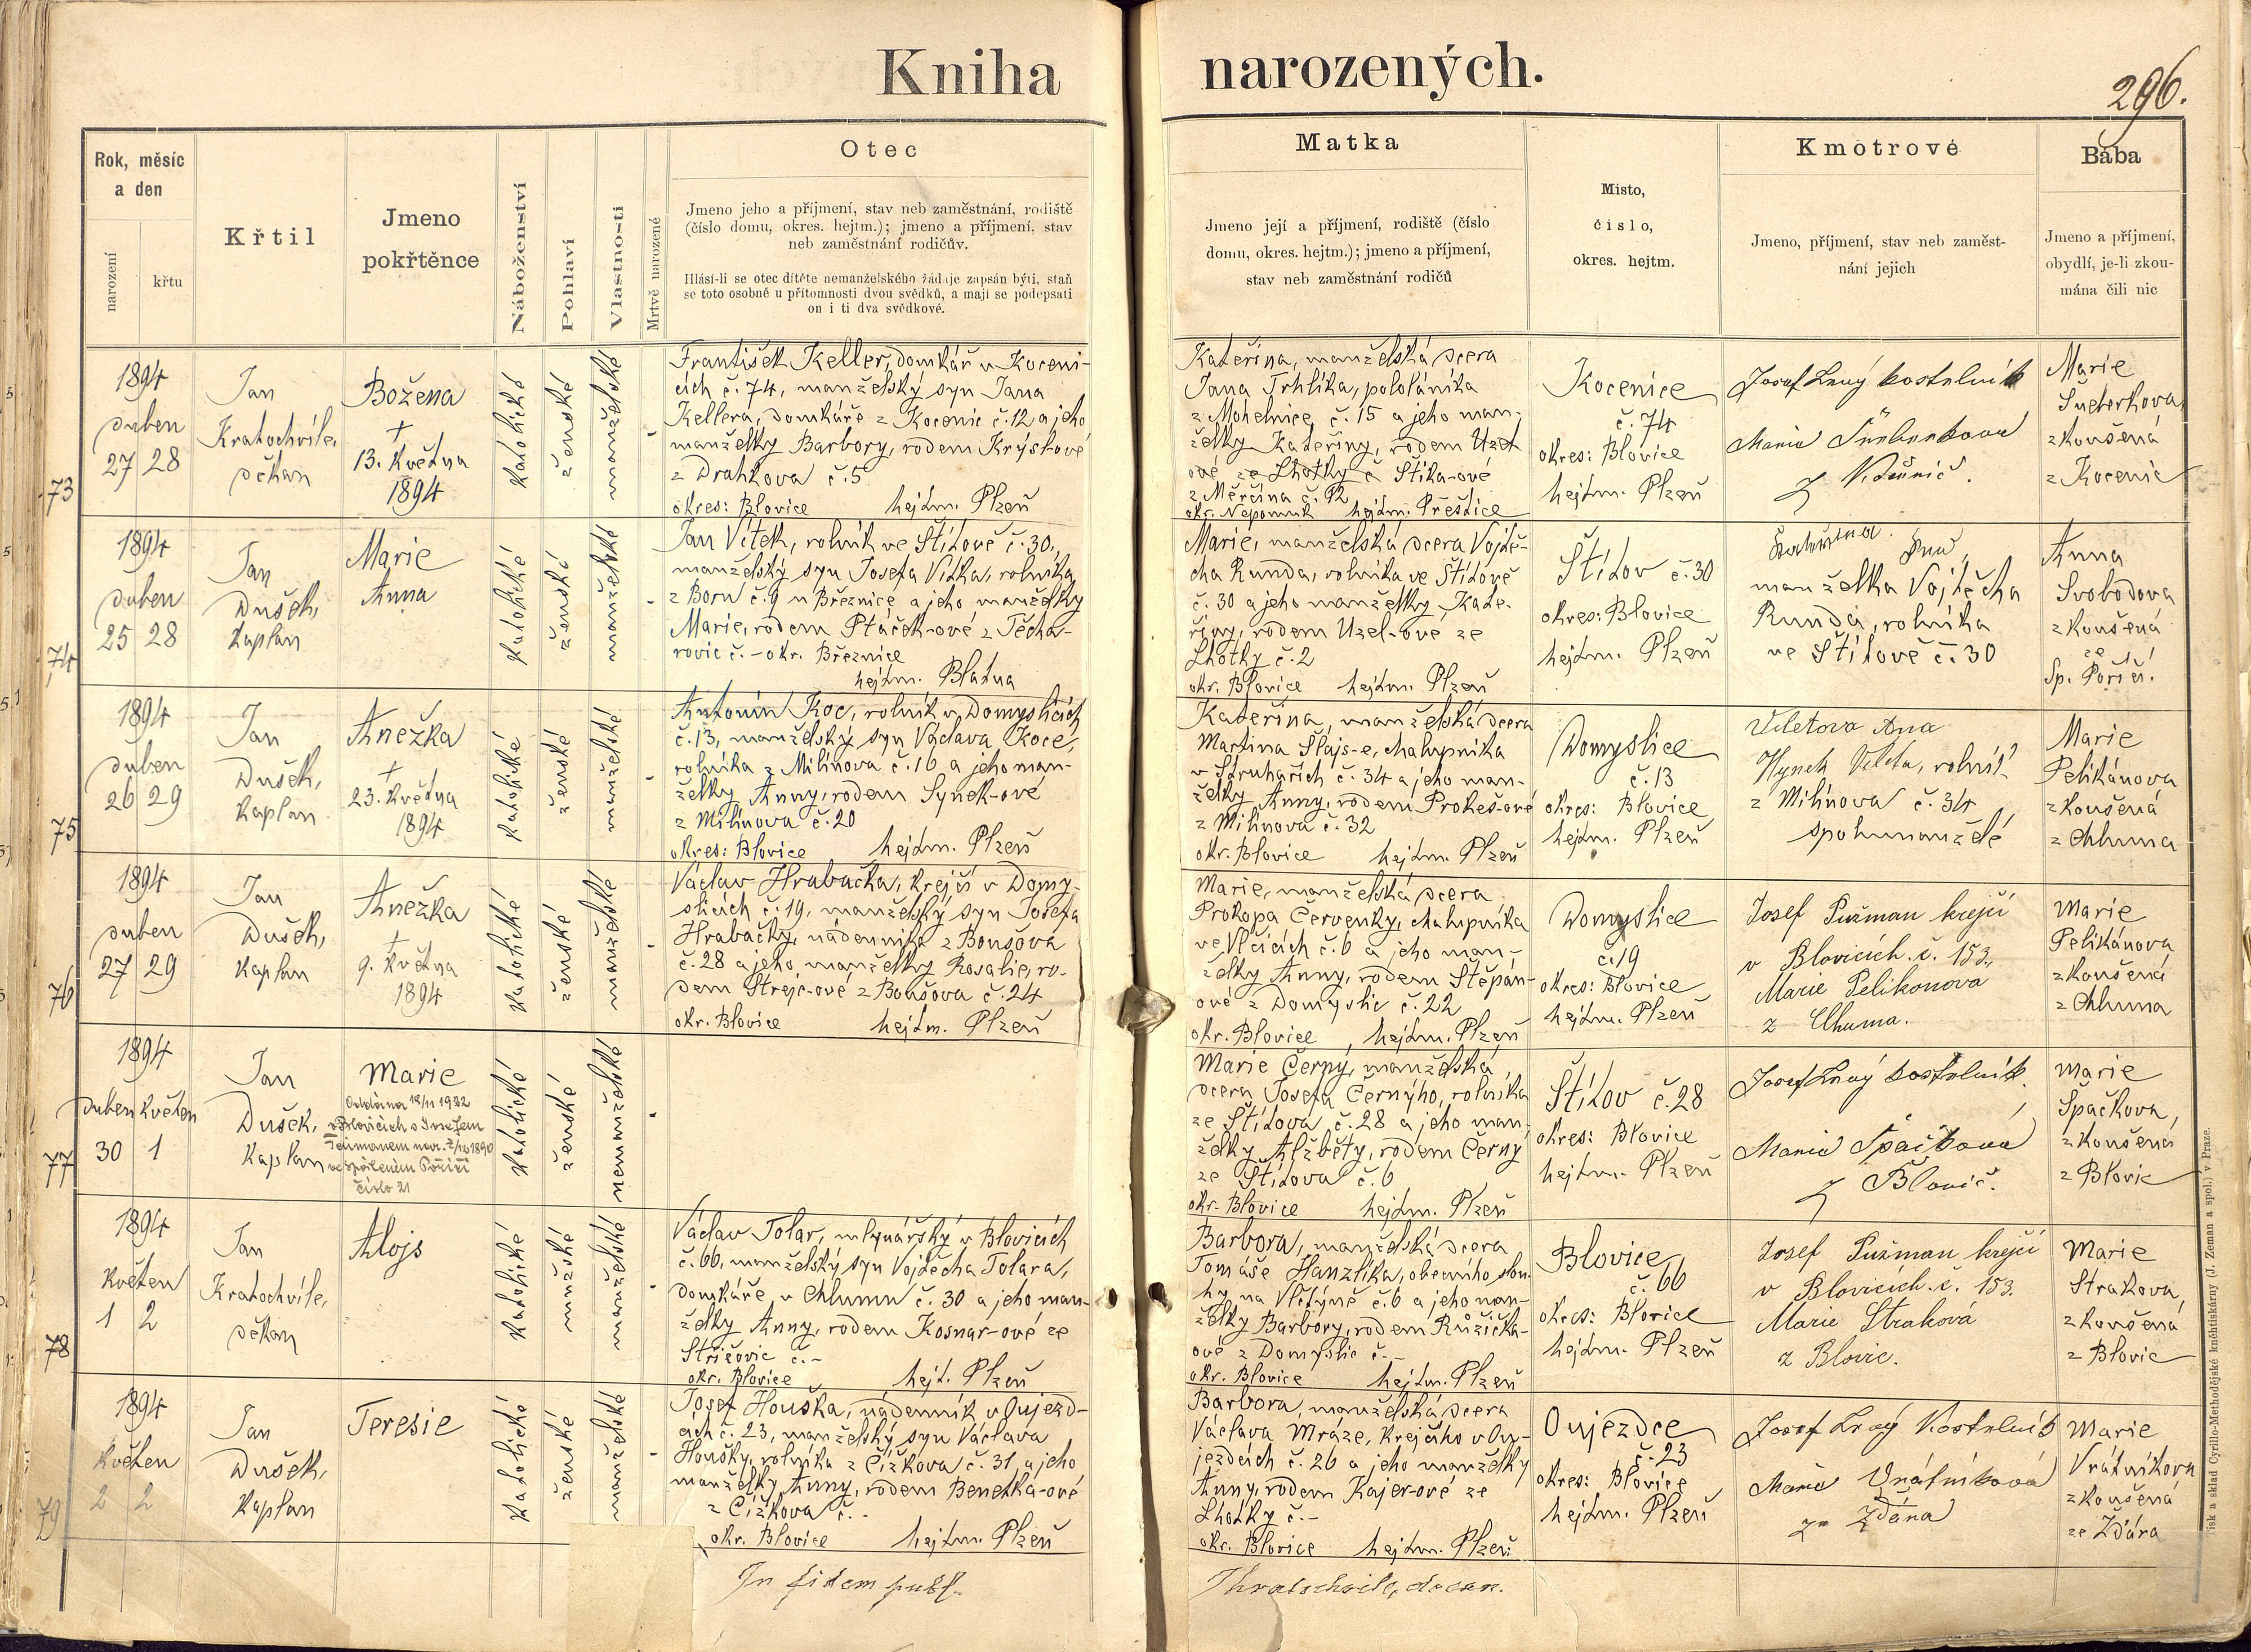 Kniha narozených.
296.
Rok, měsíc
a den
narození
křtu
Křtil
Jmeno
pokřtěnce
Náboženství
Pohlaví
Vlastnosti
Mrtvě narozené
Otec
Jmeno jeho a příjmení, stav neb zaměstnání, rodiště
(číslo domu, okres. hejtm.); jmeno a příjmení, stav
neb zaměstnání rodičův.
Hlásí-li se otec dítěte nemanželského žádaje zapsán býti, staň
se toto osobně u přítomnosti dvou svědků, a mají se podepsati
on i ti dva svědkové.
Matka
Jmeno její a příjmení, rodiště (číslo
domu, okres. hejtm.); jmeno a příjmení,
stav neb zaměstnání rodičů
Místo,
číslo,
okres. hejtm.
Kmotrové
Jmeno, příjmení, stav neb zaměst-
nání jejich
Bába
Jmeno a příjmení,
obydlí, je-li zkou-
mána čili nic
73
1894
duben
27 28
Jan
Kratochvíle,
děkan
Božena
†
13. Května
1894
katolické
ženské
manželské
František Keller, domkář v Koceni-
cích č. 74, manželský syn Jana
Kellera, domkáře z Kocenic č. 12 a jeho
manželky Barbory, rodem Krýslové
z Drahkova č. 5
okres: Blovice hejtm. Plzeň
Kateřina, manželská dcera
Jana Trhlíka, pololáníka
z Mohelnice č. 15 a jeho man-
želky Kateřiny, rodem Uzel
ové ze Lhotky č Štika-ové
z Měrčína č. 92
okr. Nepomuk hejtm. Přeštice
Kocenice
č. 74
okres: Blovice
hejtm. Plzeň
Josef Lavý kostelník
Marie
z
Marie
zkoušená
z Kocenic
74
1894
duben
25 28
Jan
Dušek,
kaplan
Marie
Anna
katolické
ženské
manželské
Jan Vítek, rolník ve Štítově č. 30,
manželský syn Josefa Vítka, rolníka
z Boru č. 9 u Březnice a jeho manželky
Marie, rodem Ptáček-ové z Těcha-
rovic č. - okr. Březnice
hejtm. Blatna
Marie, manželská dcera Vojtě-
cha Runda, rolníka ve Štítově
č. 30 a jeho manželky Kate-
řiny, rodem Uzel-ové ze
Lhotky č. 2
okr. Blovice hejtm. Plzeň
Štítov č. 30
okres: Blovice
hejtm. Plzeň
manželka Vojtěcha
Runda, rolníka
ve Štítově č. 30
Anna
Svobodova
zkoušená
ze
Sp. Poříčí.
75
1894
duben
26 29
Jan
Dušek,
kaplan
Anežka
†
23. Května
1894
katolické
ženské
manželské
Antonín Koc, rolník v Domyslicích
č. 13, manželský syn Václava Koce,
rolníka z Milínova č. 16 a jeho man-
želky Anny, rodem Synek-ové
z Milínova č. 20
okres: Blovice hejtm. Plzeň
Kateřina, manželská dcera
Martina Šlajs-e, chalupníka
v Struhařích č. 34 a jeho man-
želky Anny, rodem Prokeš-ové
z Milínova č. 32
okr. Blovice hejtm. Plzeň
Domyslice
č. 13
okres: Blovice
hejtm. Plzeň
Veletova Ana
Hynek Veleta, rolník
z Milínova č. 34
spolumanželé
Marie
Pelikánova
zkoušená
z Chluma
76
1894
duben
27 29
Jan
Dušek,
kaplan
Anežka
†
9. Května
1894
katolické
ženské
manželské
Václav Hrabačka, krejčí v Domy-
slicích č. 19, manželský syn Josefa
Hrabačky, nádenníka z Boušova
č. 28 a jeho manželky Rosalie, ro-
dem Strejc-ové z Boušova č. 24
okr. Blovice hejtm. Plzeň
Marie, manželská dcera
Prokopa Červenky, chalupníka
ve Vlčicích č. 6 a jeho man-
želky Anny, rodem Štěpán-
ové z Domyslic č. 22
okr. Blovice, hejtm. Plzeň
Domyslice
č. 19
okres: Blovice
hejtm. Plzeň
Josef Pužman krejčí
v Blovicích. č. 153.
Marie Pelikonova
z Chuma.
Marie
Pelikánova
zkoušená
z Chluma
77
1894
duben květen
30 1
Jan
Dušek,
kaplan
Marie
Oddána 18/11 1932
v Blovicích s Josefem
ve Spáleném Poříčí
číslo 21
katolické
ženské
nemanželské
Marie Černý, manželská
dcera Josefa Černýho, rolníka
ze Štítova č. 28 a jeho man-
želky Alžběty, rodem Černý
ze Štítova č. 6
okr. Blovice hejtm. Plzeň
Štítov č. 28
okres: Blovice
hejtm. Plzeň
Josef Lavý kostelník.
Marie Špačková
z Blovic.
Marie
Špačkova,
zkoušená
z Blovic
78
1894
Květen
1 2
Jan
Kratochvíle,
děkan
Alojs
katolické
mužské
manželské
Václav Tolar, mlynářský v Blovicích
č. 66, manželský syn Vojtěcha Tolara,
domkáře v Chlumu č. 30 a jeho man-
želky Anny, rodem Kosnar-ové ze
Střížovic č. -
okr. Blovice hejt. Plzeň
Barbora, manželská dcera
Tomáše Hanzlíka, obecního slou-
hy na Vlčtýně č. 6 a jeho man-
želky Barbory, rodem Růžička-
ové z Domyslic č. -
okr. Blovice hejtm. Plzeň
Blovice
č. 66
okres: Blovice
hejtm. Plzeň
Josef Pužman krejčí
v Blovicích. č. 153.
Marie Straková
z Blovic.
Marie
Strakova,
zkoušená
z Blovic
79
1894
Květen
2 2
Jan
Dušek,
kaplan
Teresie
katolické
ženské
manželské
Josef Houška, nádenník v Oujezd-
cích č. 23, manželský syn Václava
Houšky, rolníka z Čížkova č. 31, a jeho
manželky Anny, rodem Benetka-ové
z Čížkova č. -
okr. Blovice hejtm. Plzeň
Barbora, manželská dcera
Václava Mráze, krejčího v Ou-
jezdcích č. 26 a jeho manželky
Anny, rodem Kajer-ové ze
Lhotky č. -
okr. Blovice hejtm. Plzeň
Oujezdce
č. 23
okres: Blovice
hejtm. Plzeň
Josef Lavý Kostelník
Marie Vrátníková
ze Ždára
Marie
Vrátníkova
zkoušená
ze Žďára
In fidem publ.
decan.
tisk a sklad Cyrillo-Methodějské knihtiskárny (J. Zeman a spol.) v Praze.